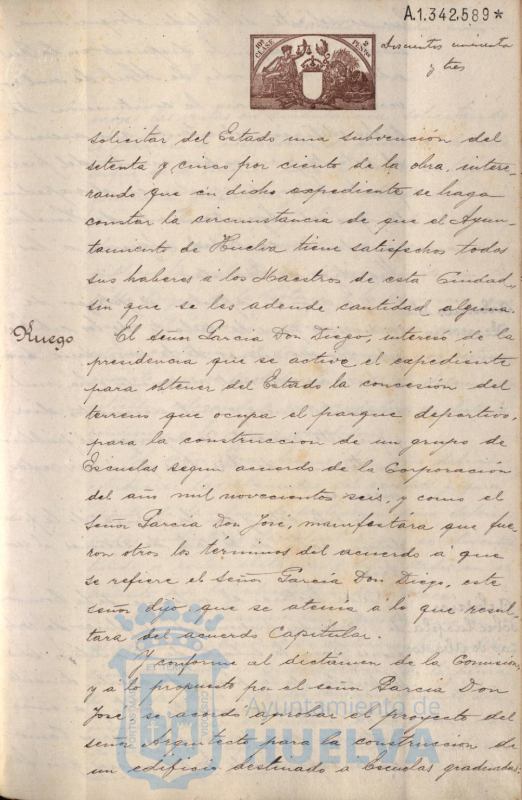 A.1.342.589*
10ª CLASE 2 PESETAS
doscientos cincuenta
y tres
solicitar del Estado una subvención del
setenta y cinco por ciento de la obra, intere-
sando que en dicho expediente se haga
constar la circunstancia de que el Ayun-
tamiento de Huelva tiene satisfechos todos
sus haberes á los Maestros de esta Ciudad,
sin que se les adeude cantidad alguna.
Ruego
El Señor Garcia Don Diego, interesó de la
presidencia que se active el expediente
para obtener del Estado la concesión del
terreno que ocupa el parque deportivo,
para la construccion de un grupo de
Escuelas segun acuerdo de la Corporación
del año mil novecientos seis, y como el
Señor Garcia Don José, manifestára que fue-
ron otros los términos del acuerdo á que
se refiere el señor García Don Diego, este
señor dijo que se atenia a lo que resul-
tára del acuerdo Capitular.
Y conforme al dictámen de la Comision
y á lo propuesto por el señor Garcia Don
José se acordó aprobar el proyecto del
señor Arquitecto para la construccion de
un edificio destinado a Escuelas graduadas;
Ayuntamiento de
HUELVA